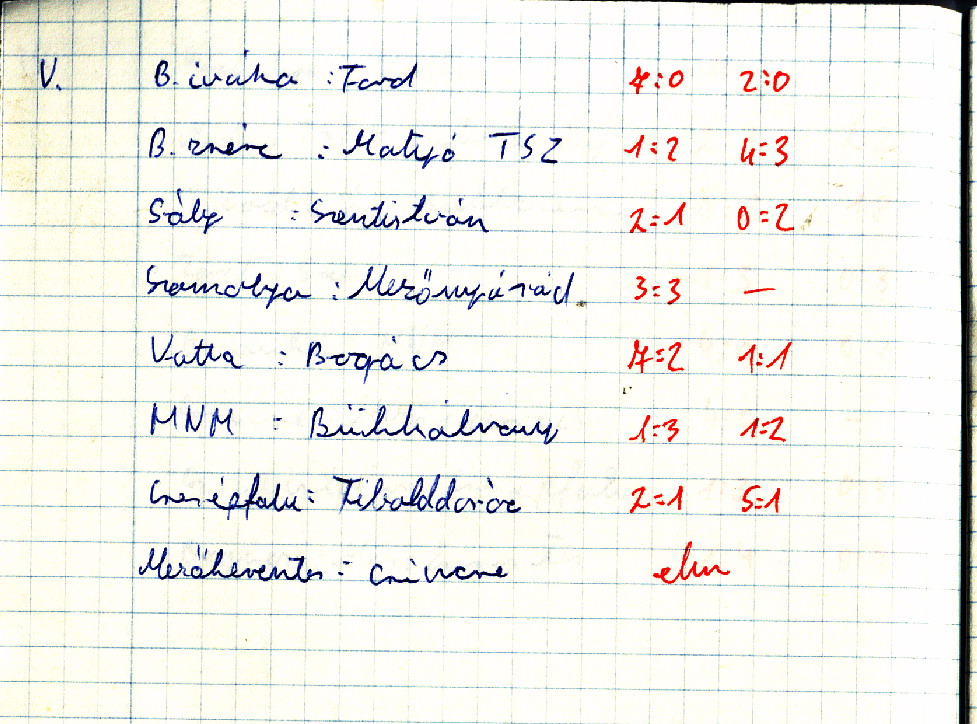 V. B. ivánka : Tard 7:0 2:0
B. zsérc : Matyó TSZ 1:2 4:3
Sály : Szentistván 2:1 0:2
Szomolya : Mezőnyárád. 3:3 —
Vatta : Bogács 7:2 1:1
MNM : Bükkábrány 1:3 1:2
Cserépfalu : Tibolddaróc 2:1 5:1
Mezőkeresztes : Csincse elm